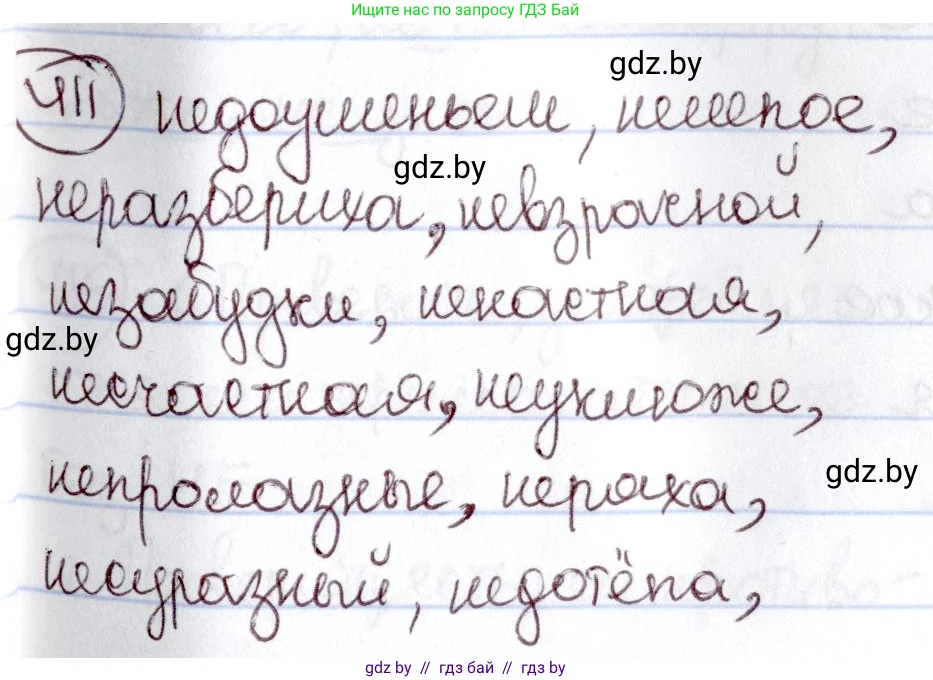 Ищите нас по запросу ГДЗ Бай
411 недоуменьем, нелепое,
gdz.by
gdz.by
неразбериха, невзрачной,
незабудки, ненастная,
gdz.by
несчастная, неуклюже,
непролазные, неряха,
gdz.by
несуразный, недотёпа,
gdz.by // гдз бай // гдз by